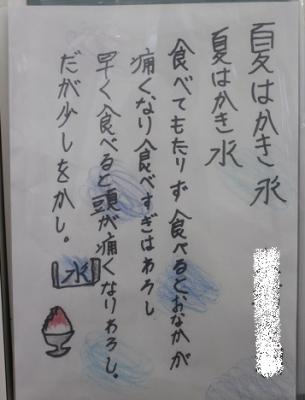 夏はかき氷
夏はかき氷
食べてもたりず食べるとおなかが
痛くなり食べすぎはわろし
早く食べると頭が痛くなりわろし。
だが少しをかし。【氷】